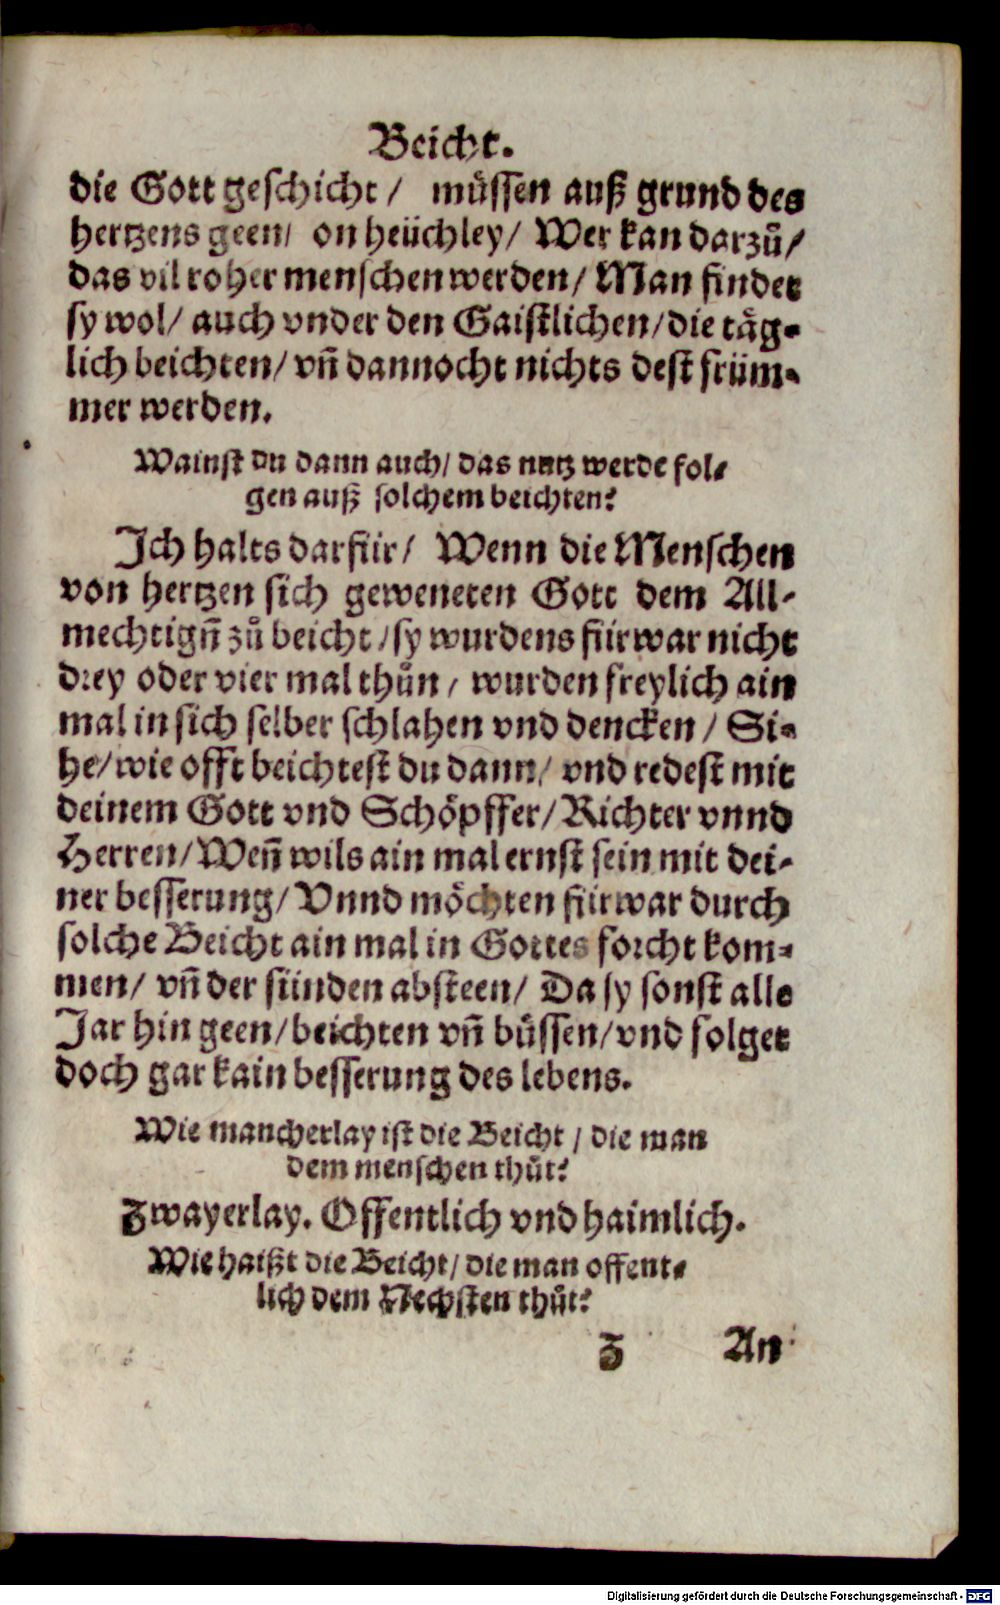 Beicht.
die Gott geschicht / müssen auß grund des
hertzens geen/ on heüchley/ Wer kan darzů/
das vil roher menschen werden/ Man findet
sy wol/ auch vnder den Gaistlichen/die täg-
lich beichten/ vñ dannocht nichts dest früm-
mer werden.
Wainst du dann auch/ das nutz werde fol-
gen auß solchem beichten?
Ich halts darfür/ Wenn die Menschen
von hertzen sich geweneten Gott dem All-
mechtigñ zů beicht/sy wurdens fürwar nicht
drey oder vier mal thůn/ wurden freylich ain
mal in sich selber schlahen vnd dencken / Si-
he/wie offt beichtest du dann/ vnd redest mit
deinem Gott vnd Schöpffer/ Richter vnnd
Herren/ Weñ wils ain mal ernst sein mit dei-
ner besserung/ Vnnd möchten fürwar durch
solche Beicht ain mal in Gottes forcht kom-
men/ vñ der sünden absteen/ Da sy sonst alle
Jar hin geen/beichten vñ büssen/vnd folget
doch gar kain besserung des lebens.
Wie mancherlay ist die Beicht / die man
dem menschen thůt?
Zwayerlay. Offentlich vnd haimlich.
Wie haißt die Beicht/ die man offent-
lich dem Nechsten thůt?
Z An
Digitalisierung gefördert durch die Deutsche Forschungsgemeinschaft - DFG